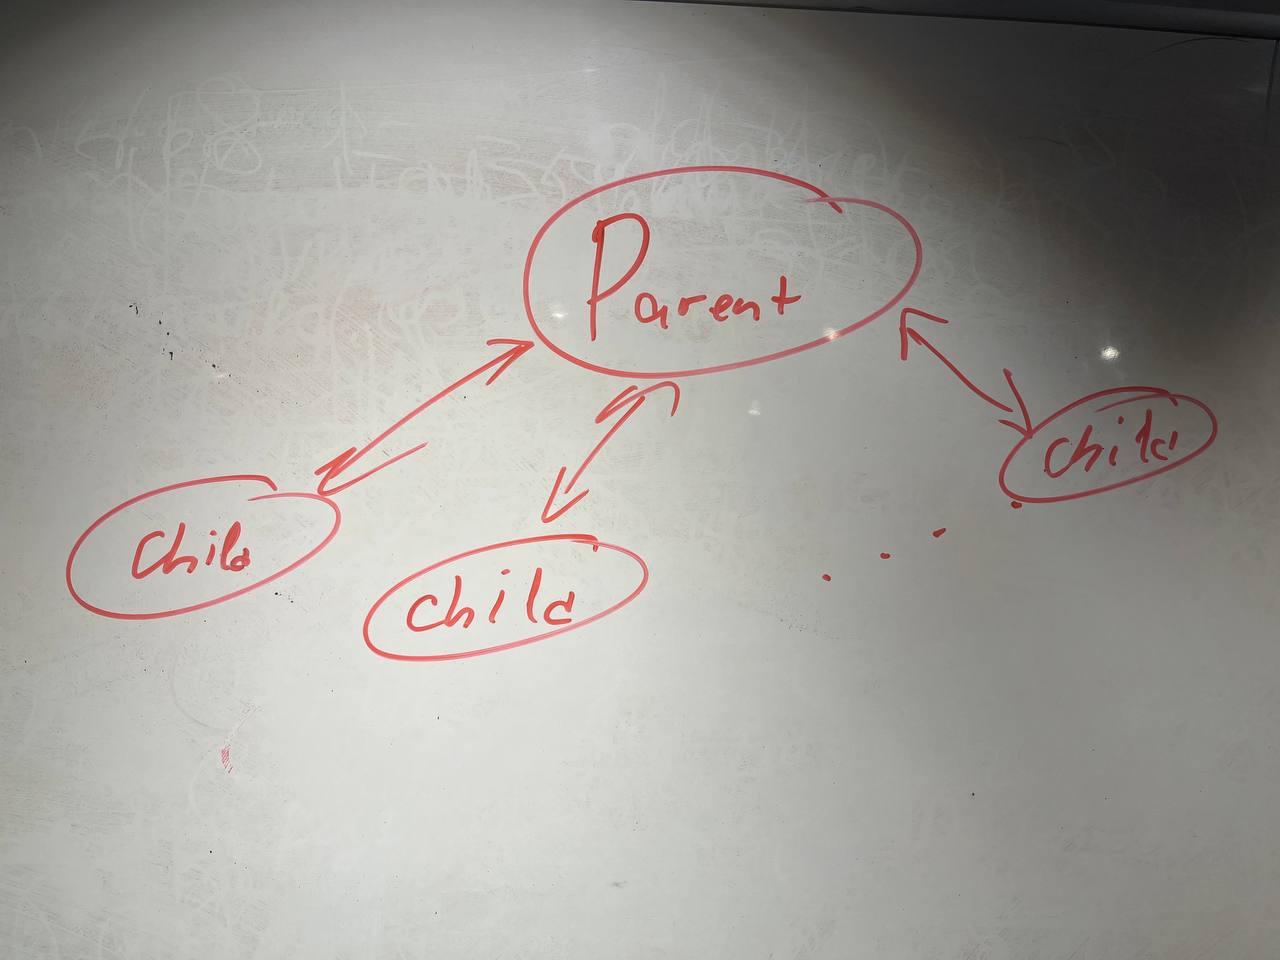 Parent
Child
Child
Child